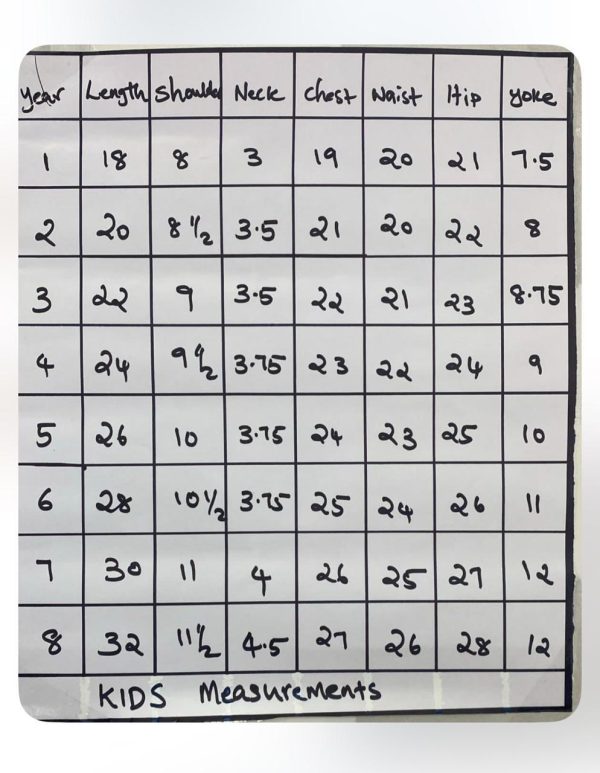 Year Length Shoulder Neck Chest Waist Hip Yoke
1 18 8 3 19 20 21 7.5
2 20 8 1/2 3.5 21 20 22 8
3 22 9 3.5 22 21 23 8.75
4 24 9 1/2 3.75 23 22 24 9
5 26 10 3.75 24 23 25 10
6 28 10 1/2 3.75 25 24 26 11
7 30 11 4 26 25 27 12
8 32 11 1/2 4.5 27 26 28 12
KIDS Measurements